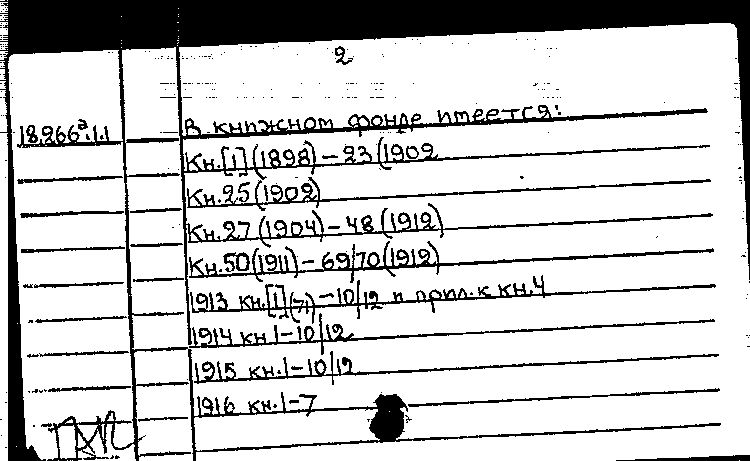 2
18.266ᵃ.1.1
В книжном фонде имеется:
Кн.[1](1898)–23(1902
Кн.25(1902)
Кн.27(1904)–48(1912)
Кн.50(1911)–69/70(1912)
1913 кн.[1](7)–10/12 и прил.к кн.4
1914 кн 1–10/12
1915 кн.1–10/12
1916 кн.1–7